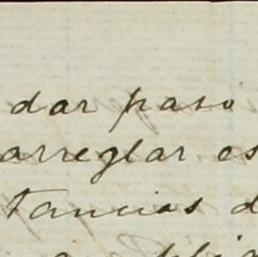 dar paso
arreglar es
tancias d